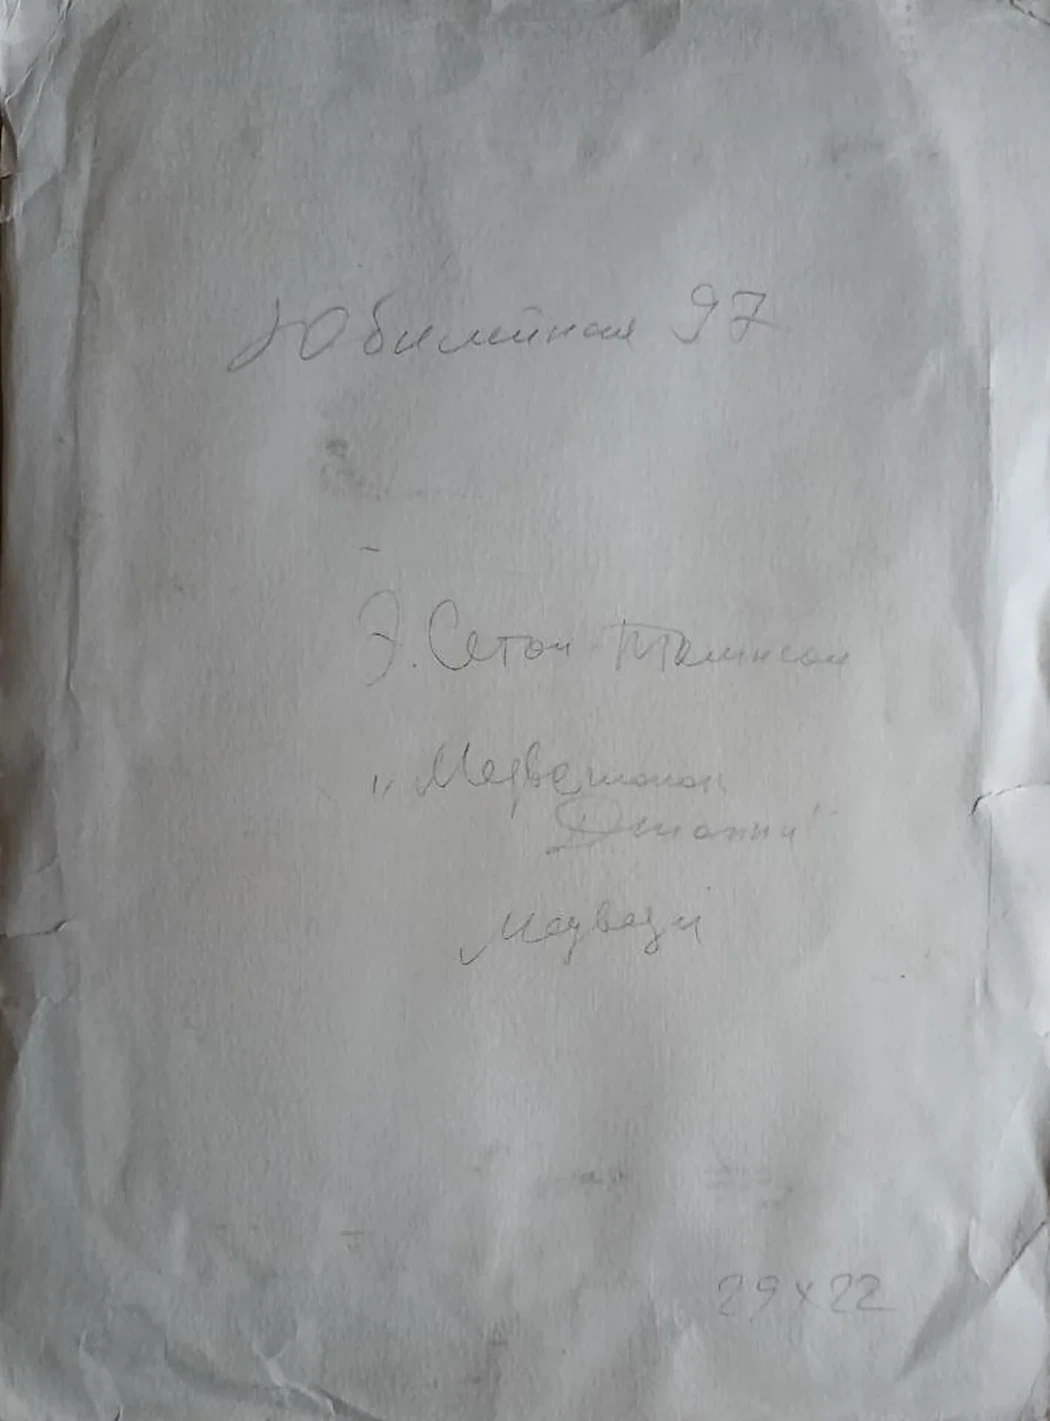 Юбилейная 97
Э. Сетон Томпсон
„Медвежонок
Джонни"
Медведи
29x22